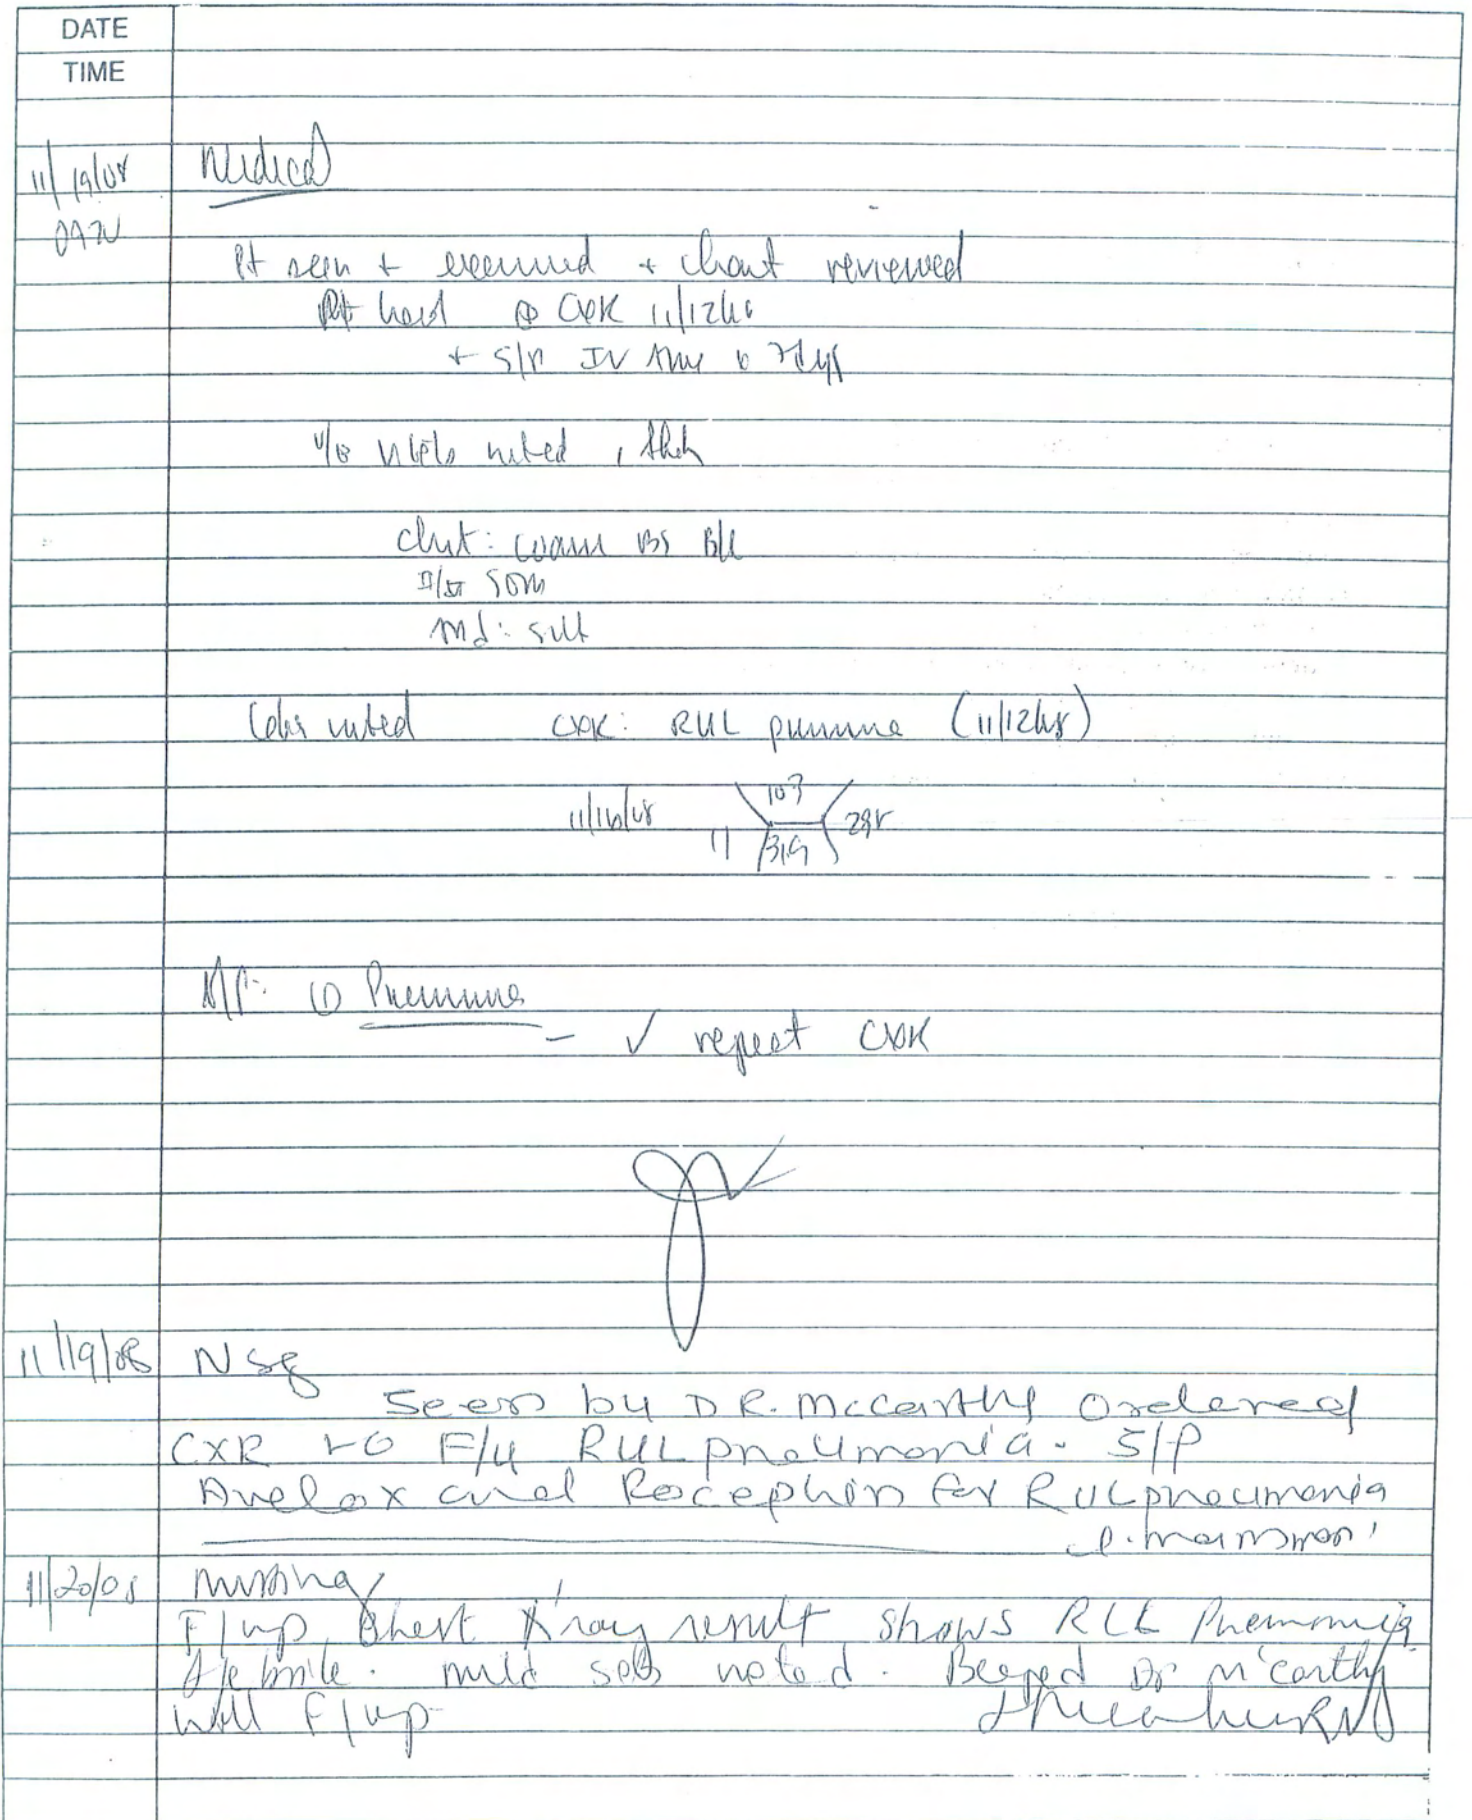 DATE
TIME
11/19/08 Medical
Pt seen + examined + chart reviewed
Pt had ⊕ CXR 11/12/08
+ S/P IV
noted
chest: coarse BS B/L
Abd: soft
Labs noted CXR: RUL pneumonia (11/12/08)
11/16/08 11 10.7 31.9 298
A/P: ① Pneumonia
- ✓ repeat CXR
11/19/08 Nsg
Seen by DR. McCarthy Ordered
CXR to F/U RUL pneumonia. S/P
Avelox and Rocephin for RUL pneumonia
11/20/08 Nursing
F/up Chest X'ray result shows RLL Pneumonia
Afebrile. mild SOB noted. Beeped Dr M'carthy
Will F/up RN